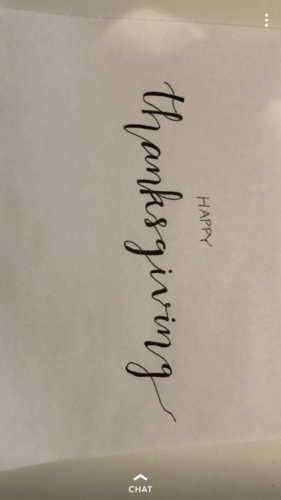 HAPPY
thanksgiving
CHAT